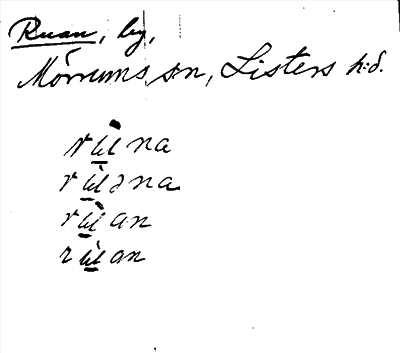 Ruan, by,
Mörrums sn, Listers h:d.
rùna
rùəna
rùan
rùan